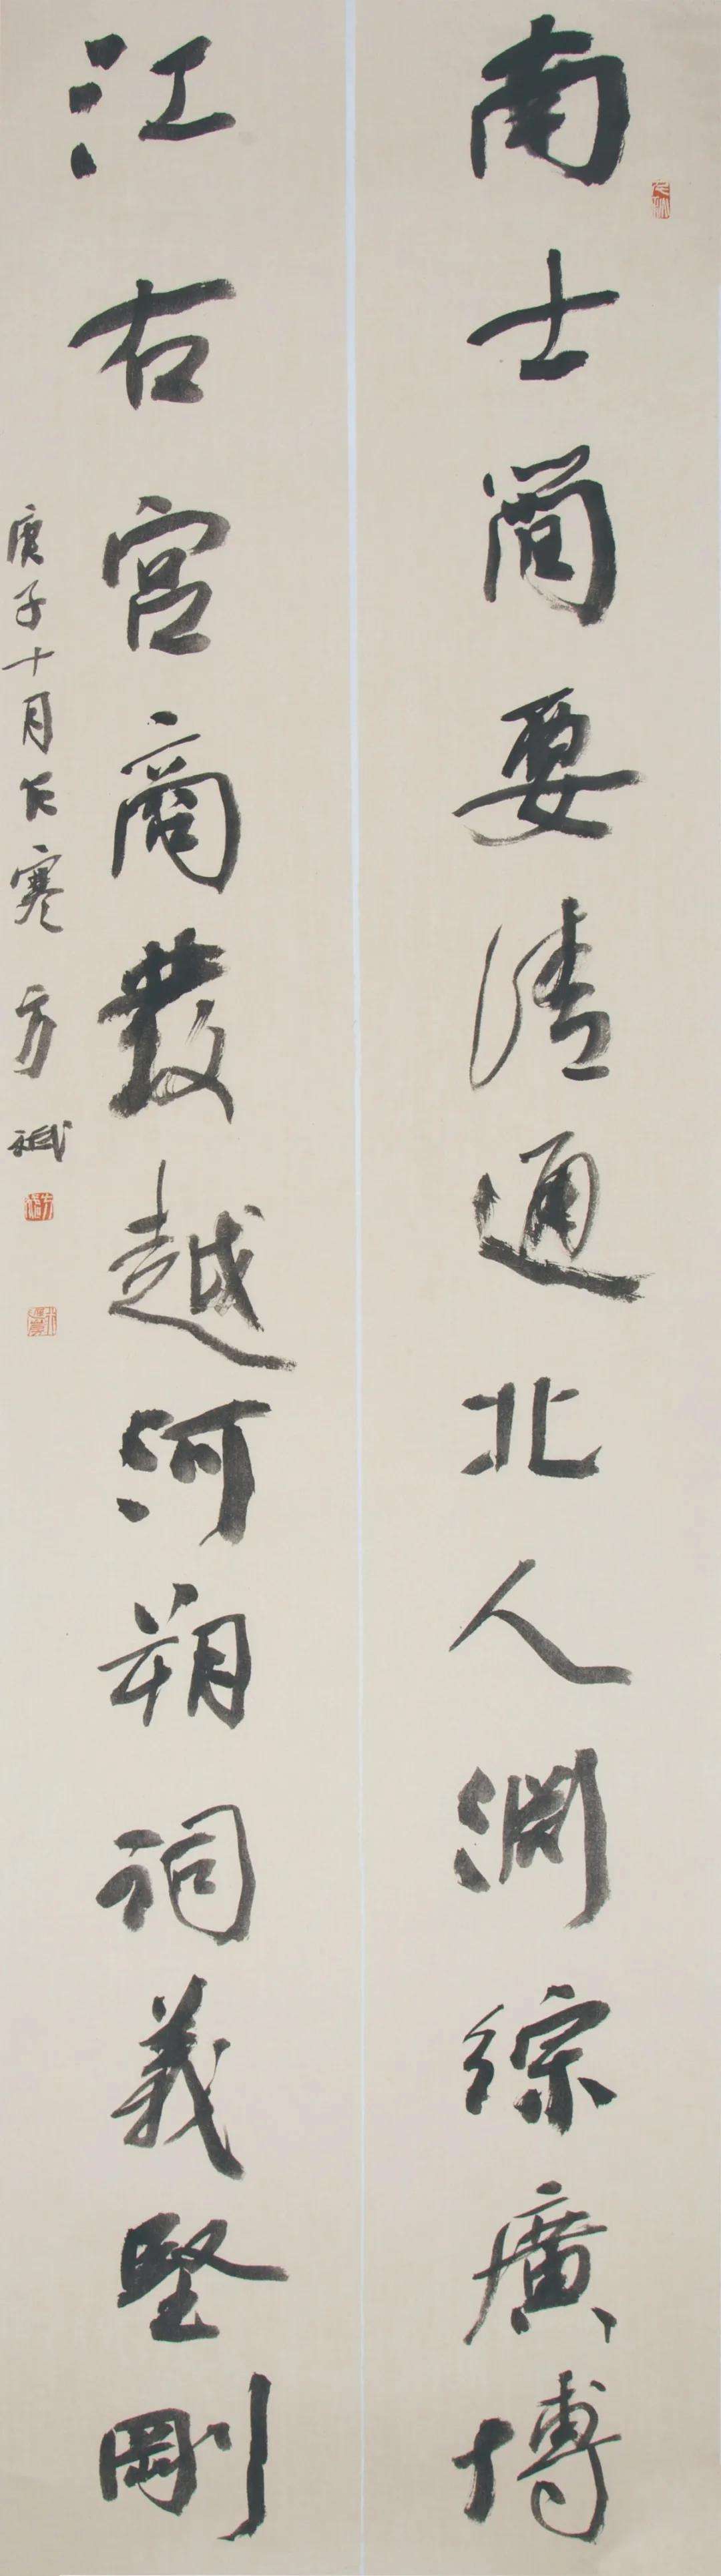 南士简要清通北人渊综廣博
江右宫商發越河朔词義堅剛
庚子十月大寒方斌